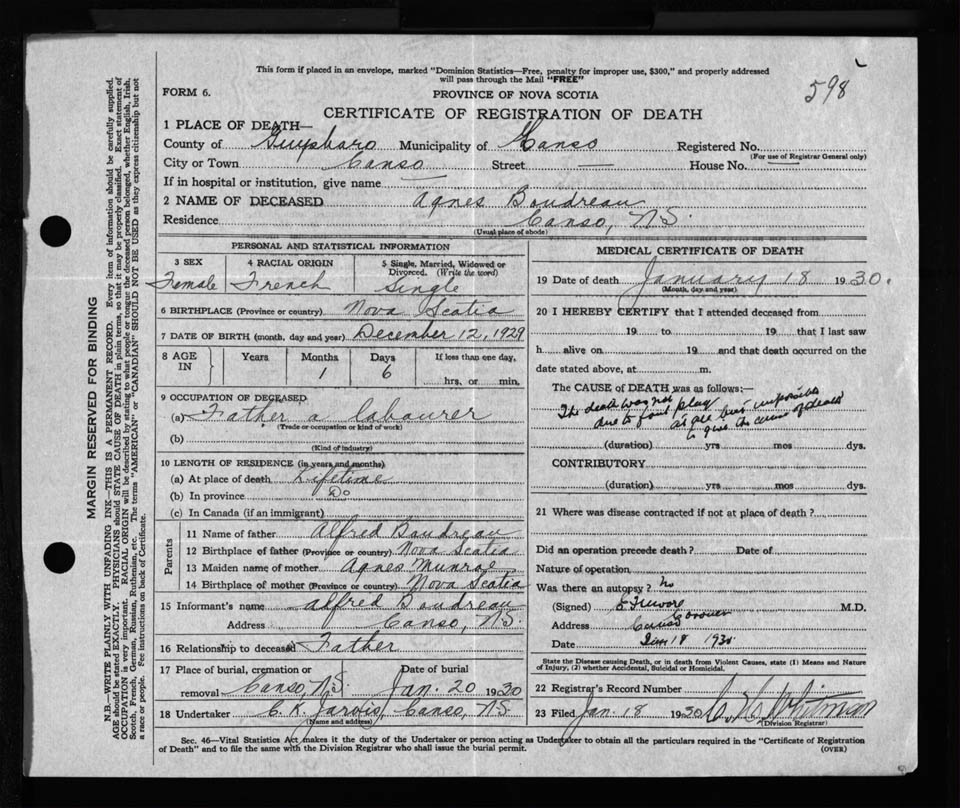 This form if placed in an envelope, marked "Dominion Statistics—Free, penalty for improper use, $300," and properly addressed
will pass through the Mail "FREE"
598
FORM 6.
PROVINCE OF NOVA SCOTIA
CERTIFICATE OF REGISTRATION OF DEATH
1 PLACE OF DEATH—
County of Guysboro Municipality of Canso Registered No.
(For use of Registrar General only)
City or Town Canso Street — House No. —
If in hospital or institution, give name —
2 NAME OF DECEASED Agnes Boudreau
Residence Canso, N.S.
(Usual place of abode)
PERSONAL AND STATISTICAL INFORMATION
3 SEX 4 RACIAL ORIGIN 5 Single, Married, Widowed or
Divorced. (Write the word)
Female French Single
6 BIRTHPLACE (Province or country) Nova Scotia
7 DATE OF BIRTH (month, day and year) December 12, 1929
8 AGE IN Years Months Days If less than one day,
1 6 hrs. or min.
9 OCCUPATION OF DECEASED
(a) Father a labourer
(Trade or occupation or kind of work)
(b)
(Kind of industry)
10 LENGTH OF RESIDENCE (in years and months)
(a) At place of death Lifetime
(b) In province Do
(c) In Canada (if an immigrant)
Parents
11 Name of father Alfred Boudreau
12 Birthplace of father (Province or country) Nova Scotia
13 Maiden name of mother Agnes Munroe
14 Birthplace of mother (Province or country) Nova Scotia
15 Informant's name Alfred Boudreau
Address Canso, N.S.
16 Relationship to deceased Father
17 Place of burial, cremation or removal Date of burial
Canso, N.S. Jan. 20 1930
18 Undertaker C. K. Jarvis, Canso, N.S.
(Name and address)
MEDICAL CERTIFICATE OF DEATH
19 Date of death January 18 1930.
(Month, day and year)
20 I HEREBY CERTIFY that I attended deceased from
19 to 19 that I last saw
h alive on 19 and that death occurred on the
date stated above, at m.
The CAUSE OF DEATH was as follows:—
The death was not
due to foul play
as all but impossible
to give the cause of death
(duration) yrs mos dys.
CONTRIBUTORY
(duration) yrs mos dys.
21 Where was disease contracted if not at place of death?
Did an operation precede death? Date of
Nature of operation
Was there an autopsy? No
(Signed) Moore M.D.
Coroner
Address Canso
Date Jan 18 1930
State the Disease causing Death, or in death from Violent Causes, state (1) Means and Nature
of Injury, (2) whether Accidental, Suicidal or Homicidal.
22 Registrar's Record Number
23 Filed Jan. 18 1930 Whitman
(Division Registrar)
Sec. 46—Vital Statistics Act makes it the duty of the Undertaker or person acting as Undertaker to obtain all the particulars required in the "Certificate of Registration
of Death" and to file the same with the Division Registrar who shall issue the burial permit. (OVER)
MARGIN RESERVED FOR BINDING
N.B.—WRITE PLAINLY WITH UNFADING INK—THIS IS A PERMANENT RECORD. Every item of information should be carefully supplied.
AGE should be stated EXACTLY. PHYSICIANS should STATE CAUSE OF DEATH in plain terms, so that it may be properly classified. Exact statement of
OCCUPATION is very important. RACIAL ORIGIN will be described by stating to what people or tongue the deceased person belonged, whether English, Irish,
Scotch, French, German, Russian, Ruthenian, etc. The terms "AMERICAN" or "CANADIAN" SHOULD NOT BE USED as they express citizenship but not
a race or people. See instructions on back of Certificate.